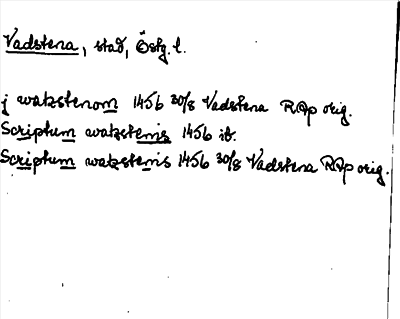 Vadstena, stad, Östg. l.
j watzstenom 1456 30/8 Vadstena RAp orig.
Scriptum watzstenis 1456 ib.
Scriptum watzstenis 1456 30/8 Vadstena RAp orig.